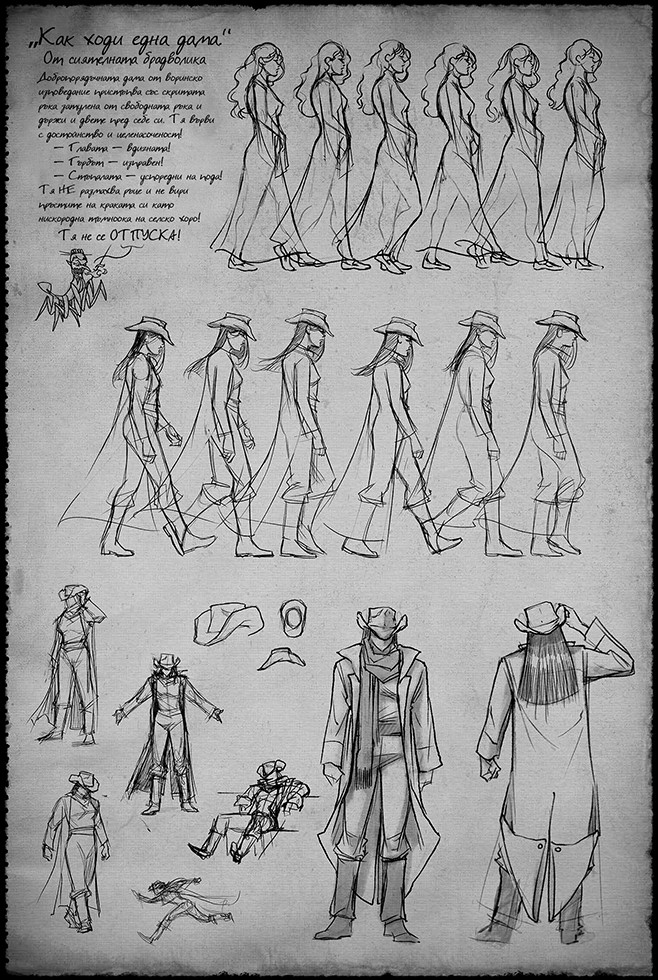 „Как ходи една дама“
От сиятелната брадволика
Добропорядъчната дама от воринско
изповедание пристъпва със скритата
ръка затулена от свободната ръка и
държи и двете пред себе си. Тя върви
с достойнство и целенасоченост!
— Главата — вдигната!
— Гърбът — изправен!
— Стъпалата — успоредни на пода!
Тя НЕ размахва ръце и не вири
пръстите на краката си като
нискородна тъмноока на селско хоро!
Тя не се ОТПУСКА!